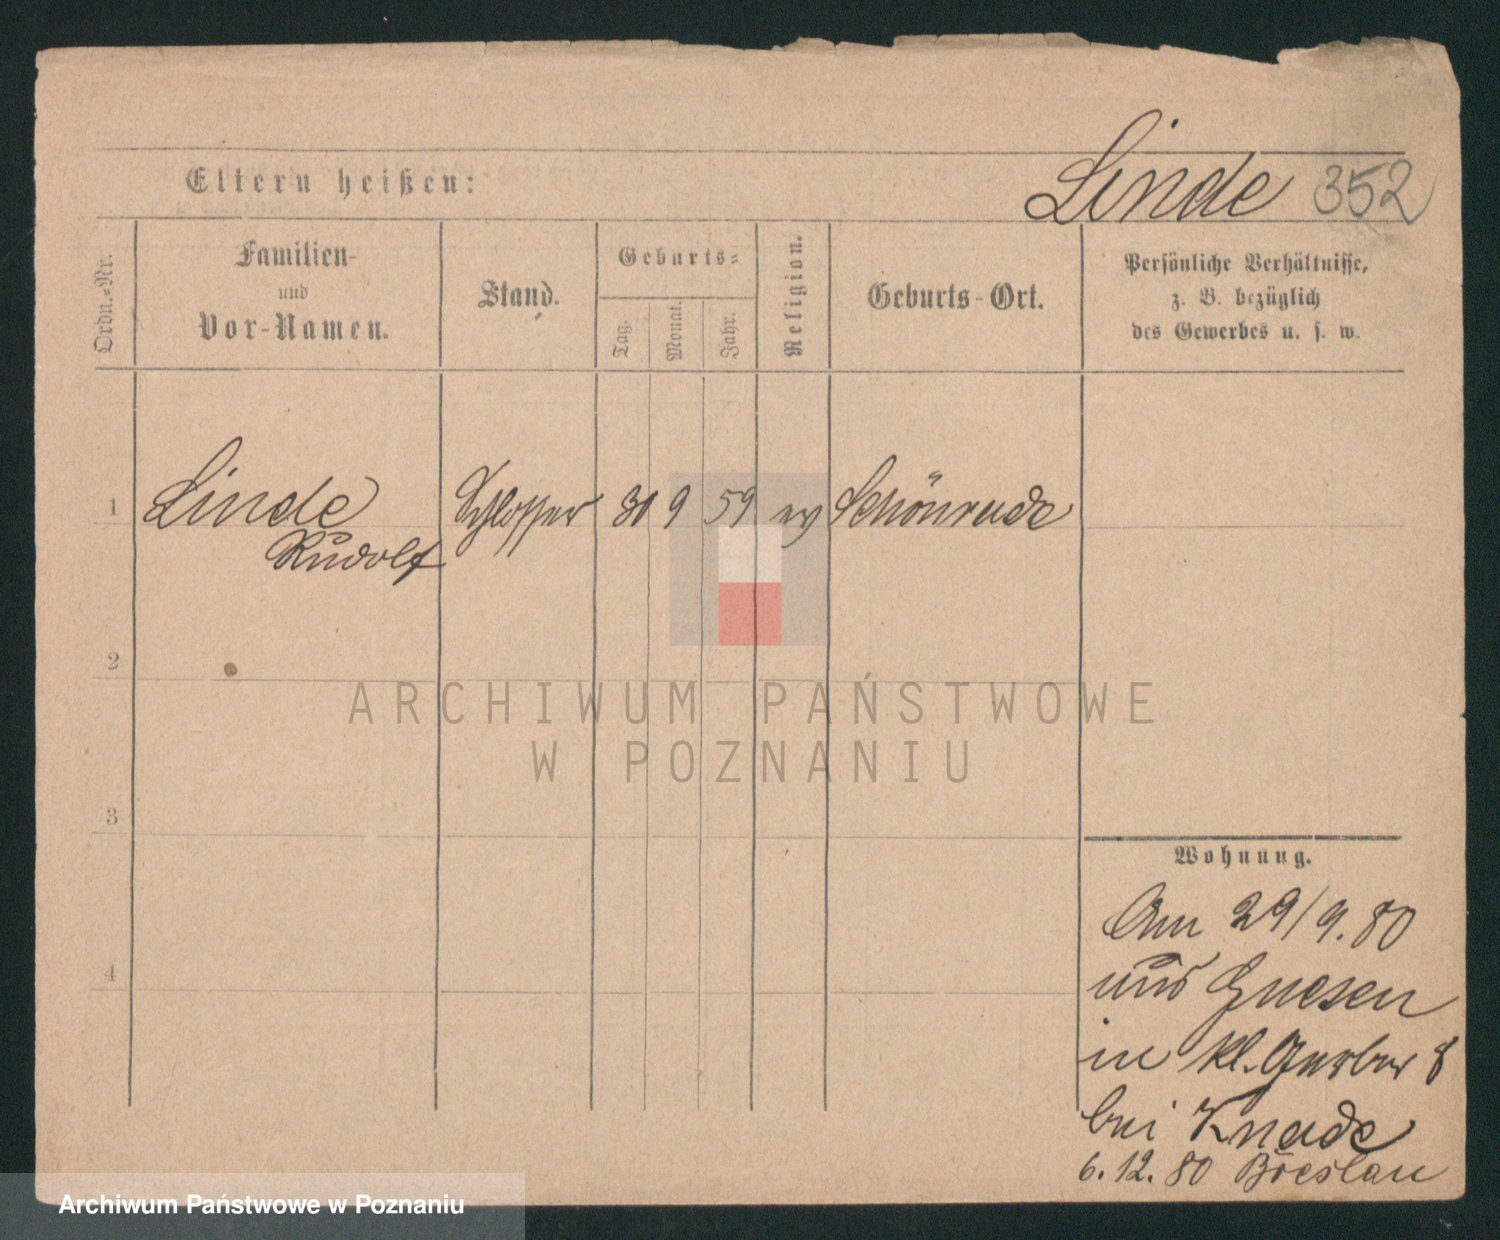 Linde 352
Eltern heißen:
Ordn.-Nr.
Familien-
und
Vor-Namen.
Stand.
Geburts-
Tag.
Monat.
Jahr.
Religion.
Geburts-Ort.
Persönliche Verhältnisse,
z. B. bezüglich
des Gewerbes u. s. w.
1 Linde Schlosser 30 9 59 ev Schönrade
Rudolf
2
3
4
ARCHIWUM PAŃSTWOWE
W POZNANIU
Wohnung.
Am 29/9.80
aus Gnesen
in kl. Gerber 8
bei Knade
6.12.80 Breslau
Archiwum Państwowe w Poznaniu